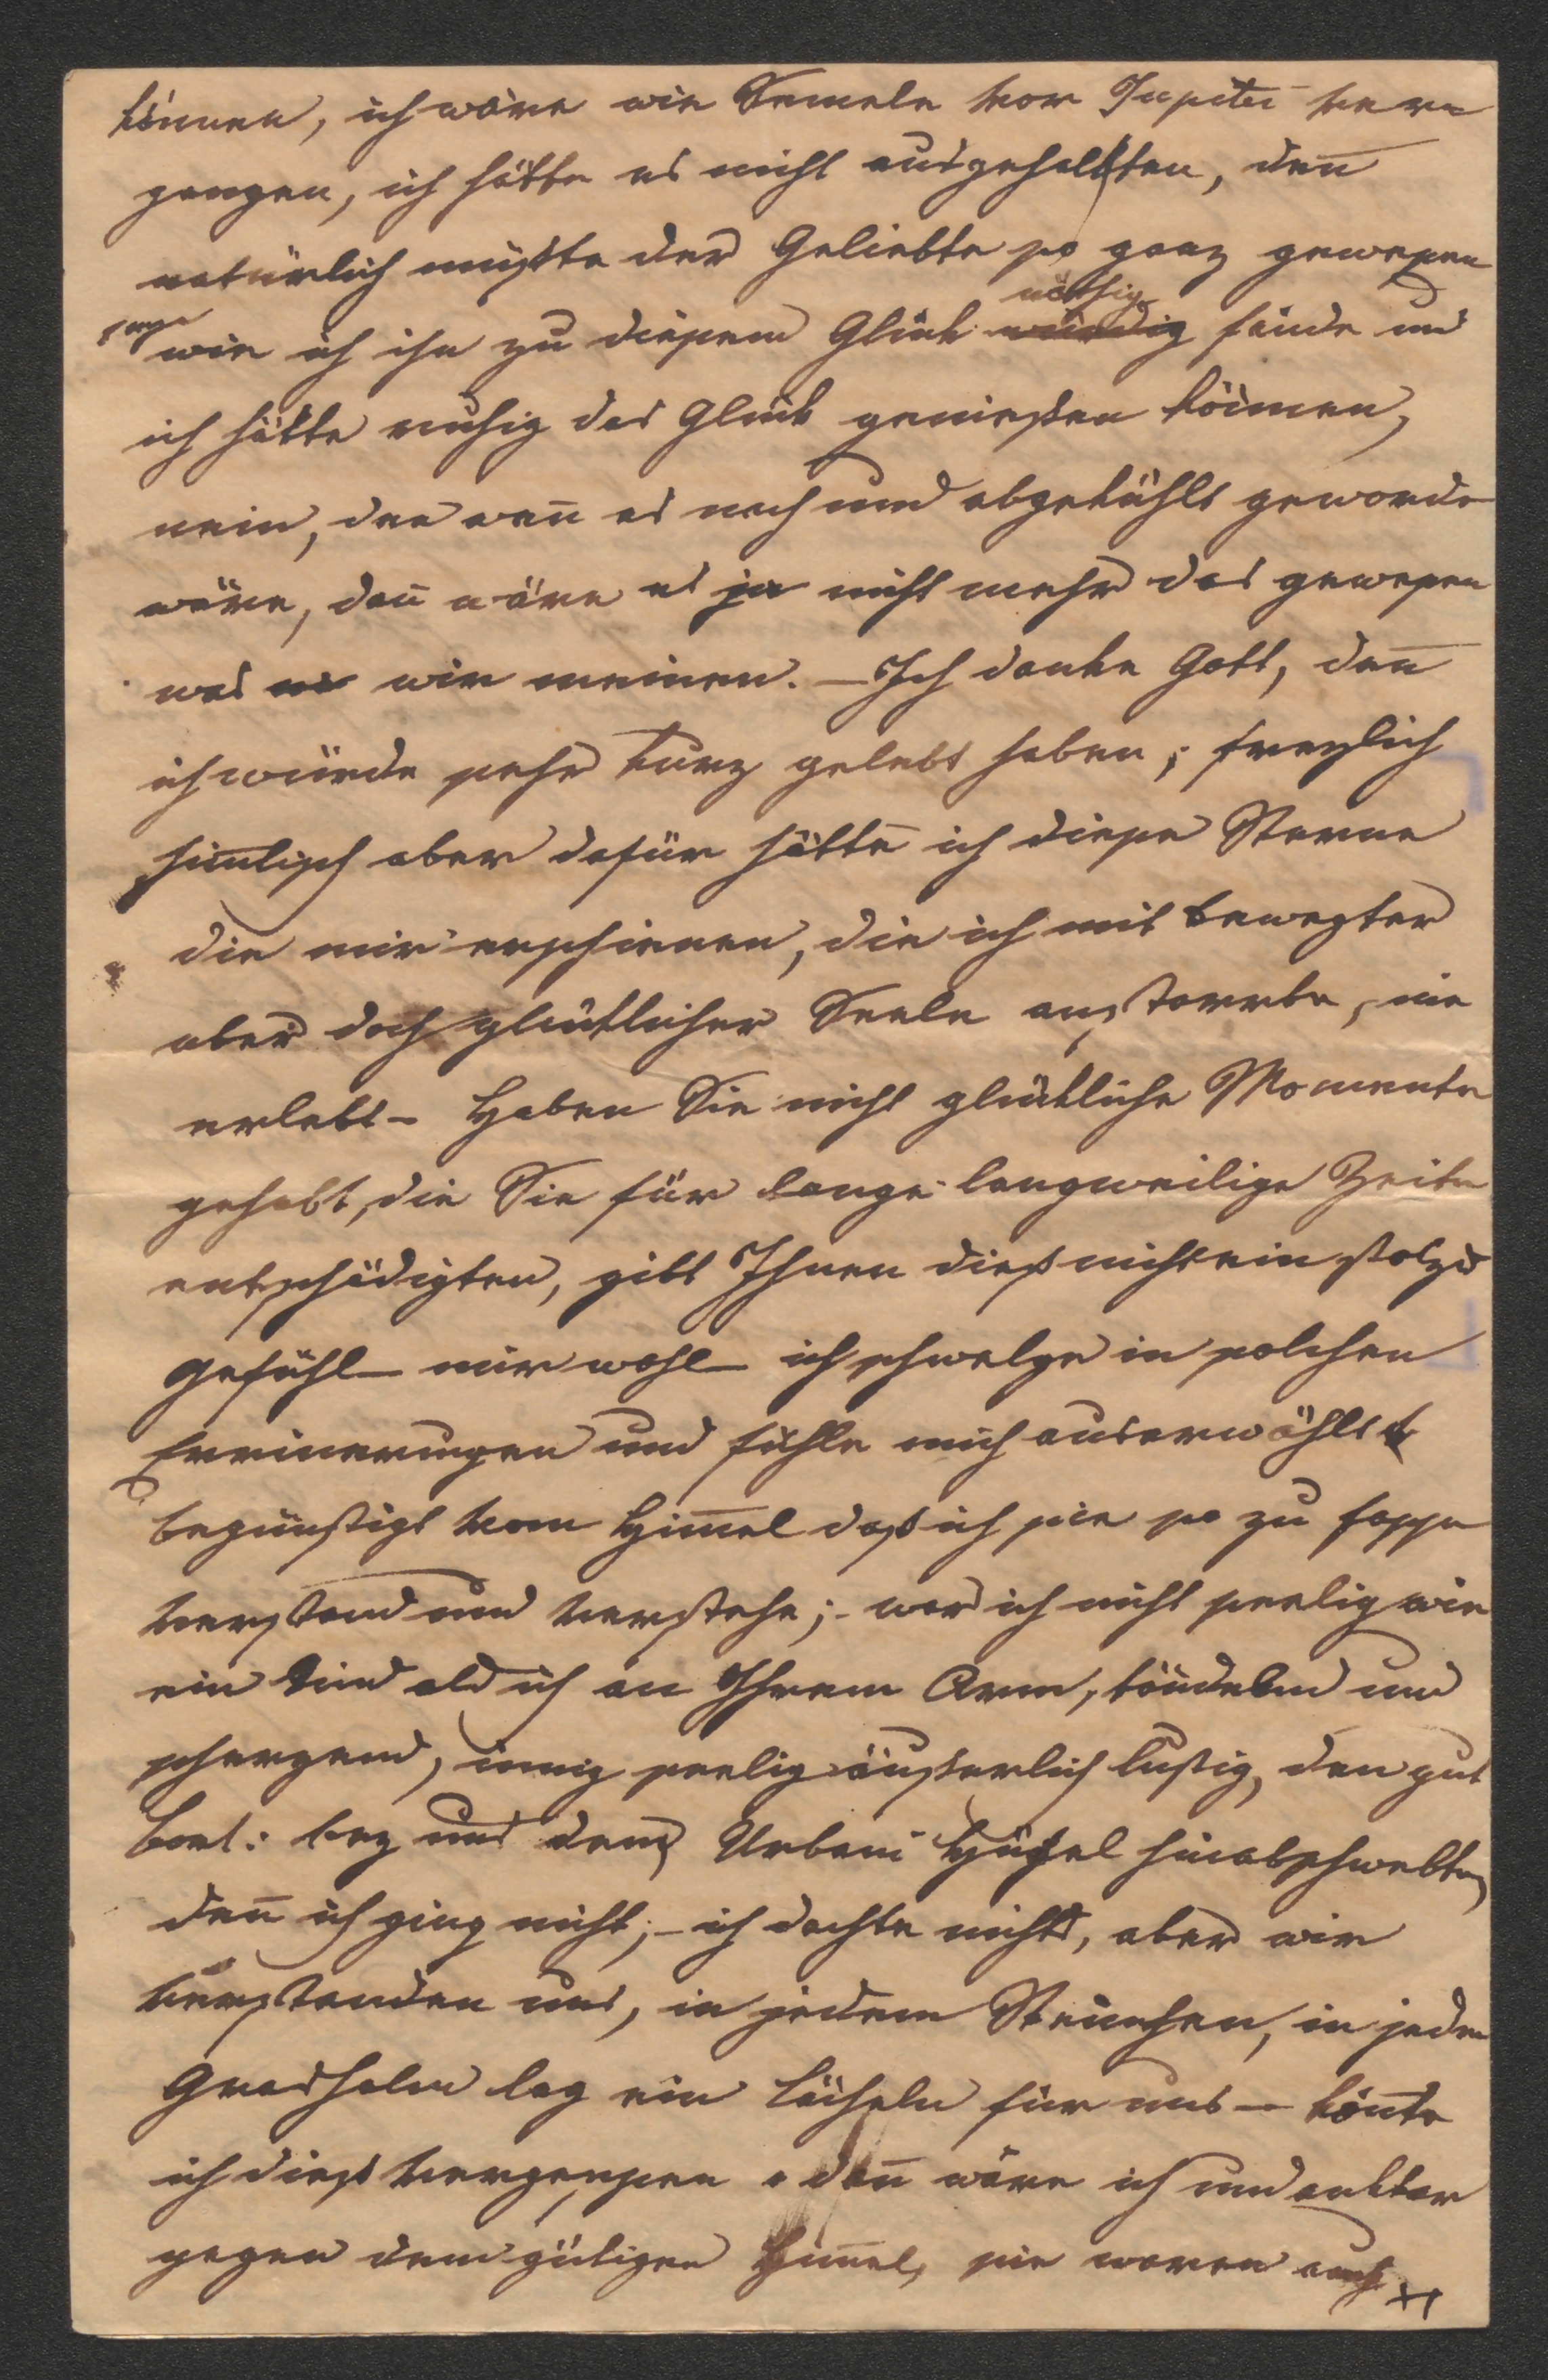 können, ich wäre wie Semele vor Jupiter ver
gangen, ich hätte es nicht ausgehalten, den̅
natürlich müßte der Geliebte so ganz gewesen
seyn wie ich ihn zu diesem Glück nöthig fände und
ich hätte ruhig das Glück genießen können,
nein, den wen̅ es nach und abgekühlt geworde
wäre, dan̅ wäre es ja nicht mehr das gewesen
was wir meinen. – Ich danke Gott, den̅
ich würde sehr kurz gelebt haben; freylich
him̅lisch aber dafür hätte ich diese Sterne
die mir erschienen, die ich mit bewegter
aber doch glücklicher Seele anstarrte, nie
erlebt – Haben Sie nicht glückliche Momente
gehabt, die Sie für lange langweilige Zeiten
entschädigten, gibt Ihnen dieß nicht ein stolzes
Gefühl – mir wohl – ich schwelge in solchen
Errinerungen und fühle mich auserwählt
begünstigt vom Him̅el daß ich sie so zu fasse
verstand und verstehe; – war ich nicht seelig wie
ein Kind als ich an Ihrem Arm, tändelnd und
scherzend, innig seelig äußerlich lustig, den gut
bey uns dem Urbani Hügel hinabschwebten
den̅ ich ging nicht; – ich dachte nichts, aber wir
verstanden uns, in jedem Steinchen, in jedem
Grashalm lag ein Lächeln für uns – kön̅te
ich dieß vergessen dan̅ wäre ich undankbar
gegen dem gütigen Him̅el, sie waren auch